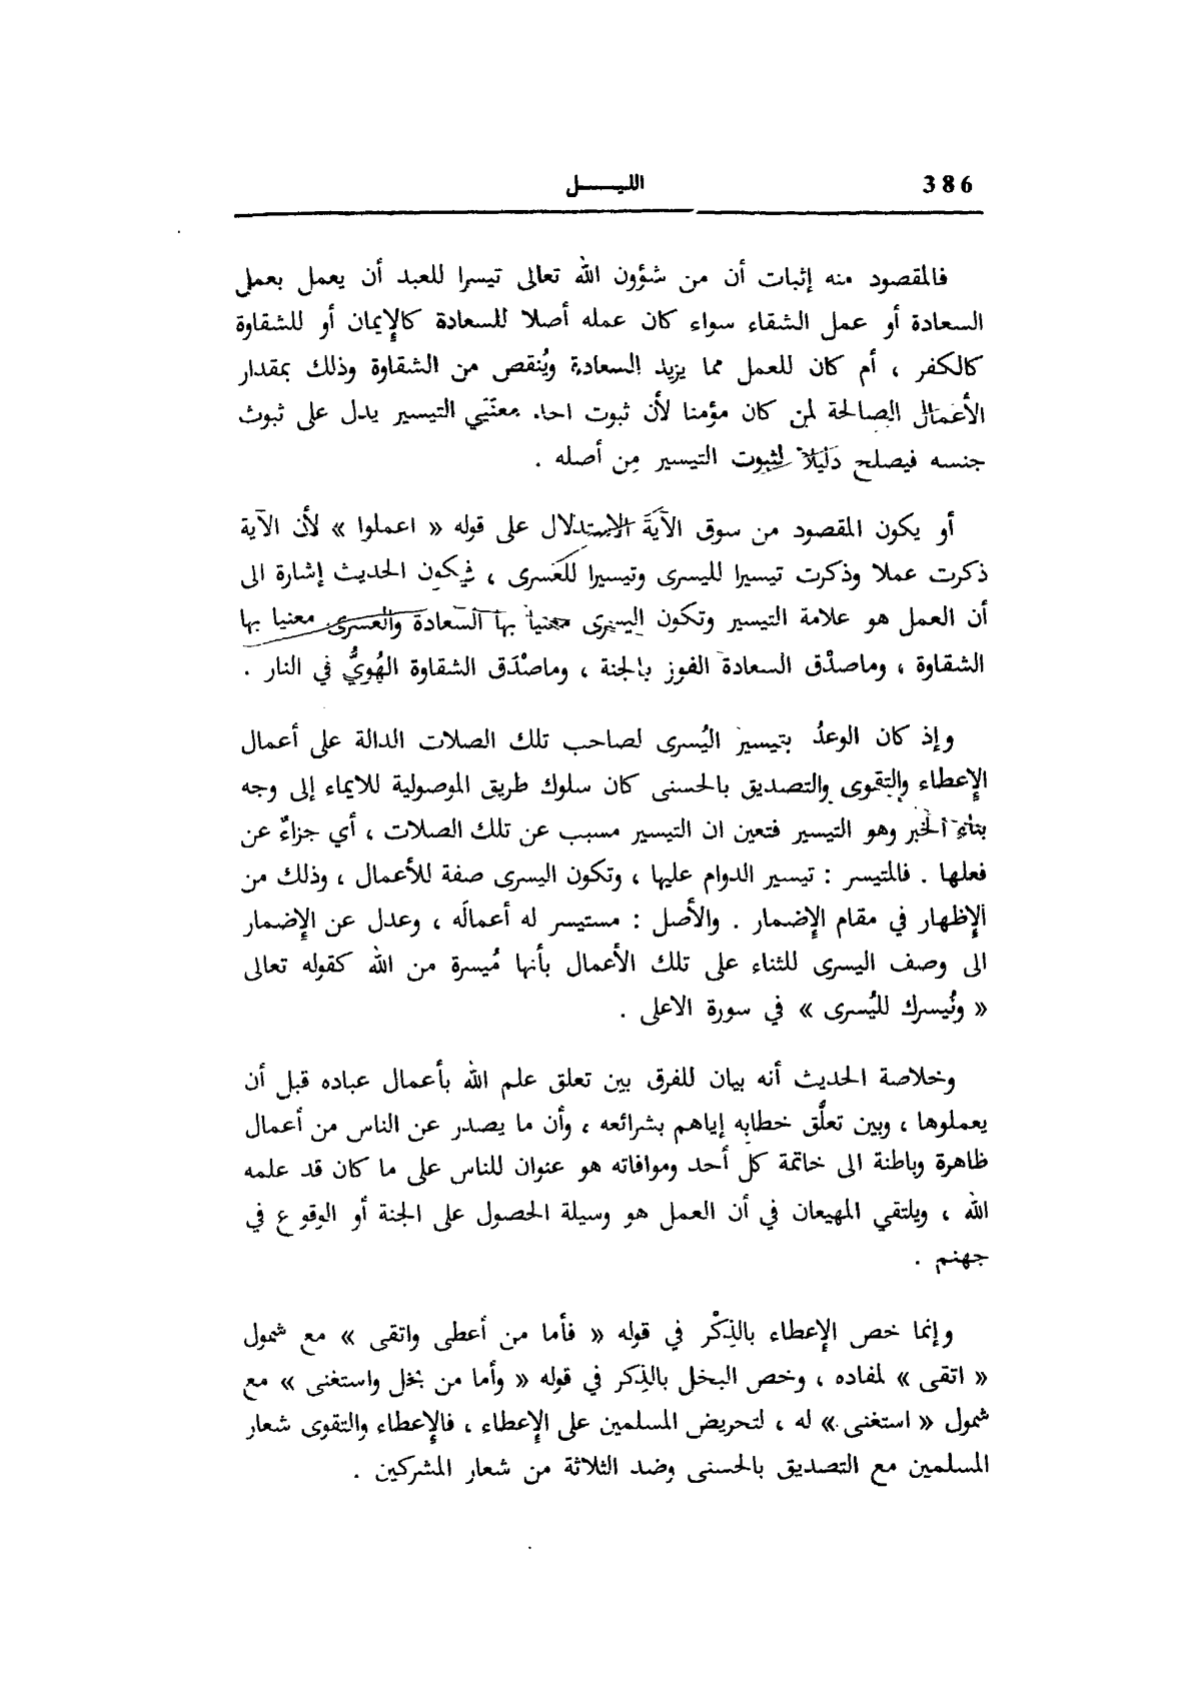 386 الليـــــل
فالمقصود منه إثبات أن من شؤون الله تعالى تيسرا للعبد أن يعمل بعمل
السعادة أو عمل الشقاء سواء كان عمله أصلا للسعادة كالإيمان أو للشقاوة
كالكفر ، أم كان للعمل مما يزيد السعادة ويُنقص من الشقاوة وذلك بمقدار
الأعمال الصالحة لمن كان مؤمنا لأن ثبوت احد معنَيي التيسير يدل على ثبوت
جنسه فيصلح دَليلا لثبوت التيسير مِن أصله .
أو يكون المقصود من سوق الآيَة الاستدلال على قوله « اعملوا » لأن الآية
ذكرت عملا وذكرت تيسيرا لليسرى وتيسيرا للعسرى ، فيكون الحديث إشارة الى
أن العمل هو علامة التيسير وتكون اليسرى معنيا بها السعادة والعسرى معنيا بها
الشقاوة ، وماصدْق السعادة الفوز بالجنة ، وماصْدَق الشقاوة الهُوِيُّ في النار .
وإذ كان الوعدُ بتيسير اليُسرى لصاحب تلك الصلات الدالة على أعمال
الإعطاء والتقوى والتصديق بالحسنى كان سلوك طريق الموصولية للايماء إلى وجه
بناءِ الخبر وهو التيسير فتعين ان التيسير مسبب عن تلك الصلات ، أي جزاءٌ عن
فعلها . فالمتيسر : تيسير الدوام عليها ، وتكون اليسرى صفة للأعمال ، وذلك من
الإظهار في مقام الإضمار . والأصل : مستيسر له أعمالَه ، وعدل عن الإضمار
الى وصف اليسرى للثناء على تلك الأعمال بأنها مُيسرة من الله كقوله تعالى
« ونُيسرك لليُسرى » في سورة الاعلى .
وخلاصة الحديث أنه بيان للفرق بين تعلق علم الله بأعمال عباده قبل أن
يعملوها ، وبين تعلُّق خطابه إياهم بشرائعه ، وأن ما يصدر عن الناس من أعمال
ظاهرة وباطنة الى خاتمة كل أحد وموافاته هو عنوان للناس على ما كان قد علمه
الله ، ويلتقي المهيعان في أن العمل هو وسيلة الحصول على الجنة أو الوقوع في
جهنم .
وإنما خص الإعطاء بالذِكْر في قوله « فأما من أعطى واتقى » مع شمول
« اتقى » لمفاده ، وخص البخل بالذِكر في قوله « وأما من بخل واستغنى » مع
شمول « استغنى » له ، لتحريض المسلمين على الإعطاء ، فالإعطاء والتقوى شعار
المسلمين مع التصديق بالحسنى وضد الثلاثة من شعار المشركين .